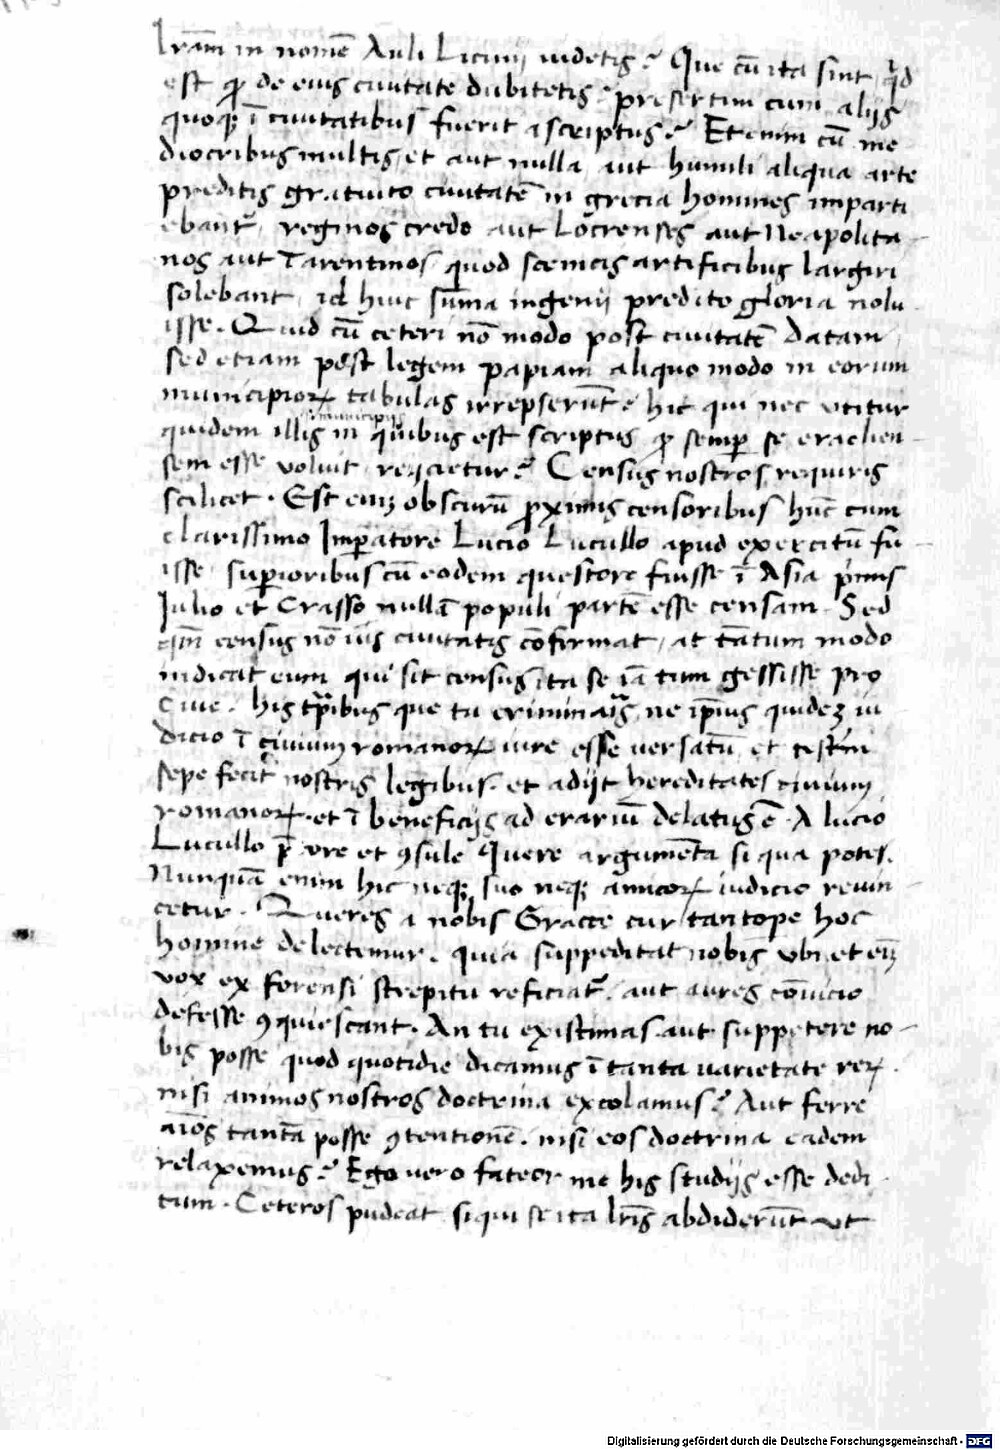 lrām in nomē Auli Licinij uidetis? Que cū ita sint qd
est qͦ de eius ciuitate dubitetis? presertim cum alijs
quoqꝫ ī ciuitatibus fuerit ascriptus? Etenim cū me
diocribus multis, et aut nulla aut humili aliqua arte
preditis gratuito ciuitatē in grecia homines imparti
ebantᷣ, reginos credo aut Locrenses aut Neapolita-
nos aut Tarentinos quod scenicis artificibus largiri
solebant, id huic sūma ingenij predito gloria nolu-
isse. Quid cū ceteri nō modo post ciuitatē datam
sed etiam post legem papiam aliquo modo in eorum
municipioꝝ tabulas irrepserūt? hic qui nec utitur
municipijs
quidem illis in quibus est scriptus, qͦ semꝑ se eraclien-
sem esse uoluit reijcietur? Census nostros requiris
scilicet. Est enī obscurū ꝓximis censoribus hūc cum
clarissimo Imꝑatore Lucio Lucullo apud exercitū fu-
isse, suꝑioribus cū eodem questore fuisse ī Asia pͥmis
Julio et Crasso nullā populi partē esse censam. Sed
qm̄ census nō ius ciuitatis cōfirmat, at tātum modo
indicat eum qui sit census ita se iā tum gessisse pro
Ciue. his tꝑibus que tu criminaris, ne ip̄ius quideꝫ iu
dicio ī ciuium romanoꝝ iure esse uersatū, et testm̄
sepe fecit nostris legibus. et adijt hereditates ciuium
romanoꝝ. et ī beneficijs ad erariū delatus ē. A lucio
Lucullo p̄ tore et ꝯsule Quere argumēta si qua potes.
Nunquā enim hic neqꝫ suo neqꝫ amicoꝝ iudicio reuin
cetur. Queres a nobis Gracce cur tantope hoc
homine delectemur. quia suppeditat nobis ubi et eiꝫ
uox ex forensi strepitu reficiatᷣ, aut aures cōuicio
defesse ꝯquiescant. An tu existimas aut suppetere no-
bis posse quod quotidie dicamus ī tanta uarietate reꝝ.
nisi animos nostros doctrina excolamus? Aut ferre
aīos tantā posse ꝯtentionē. nisi eos doctrina eadem
relaxemus? Ego uero fateor me his studijs esse dedi-
tum. Ceteros pudeat si qui se ita lr̄is abdiderūt ut
Digitalisierung gefördert durch die Deutsche Forschungsgemeinschaft - DFG